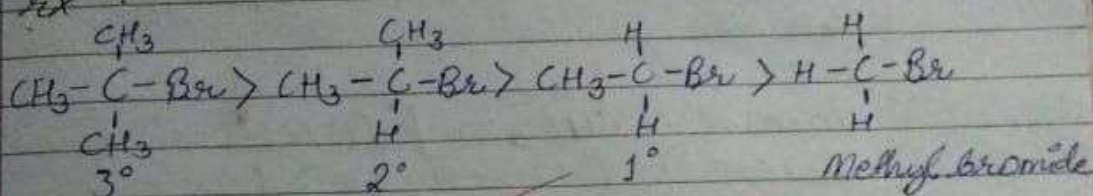 Ex
CH3 CH3 H H
CH3-C-Br > CH3-C-Br > CH3-C-Br > H-C-Br
CH3 H H H
3° 2° 1° Methyl bromide